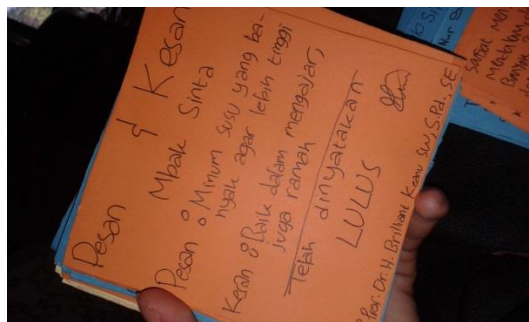 Pesan & Kesan
Mbak Sinta
Pesan : Minum susu yang ba-
nyak agar lebih tinggi
Kesan : Baik dalam mengajar,
juga ramah
Telah dinyatakan
LULUS
Prof. Dr. H. Brilliant Keanu SW, S.Pd., SE
Nur